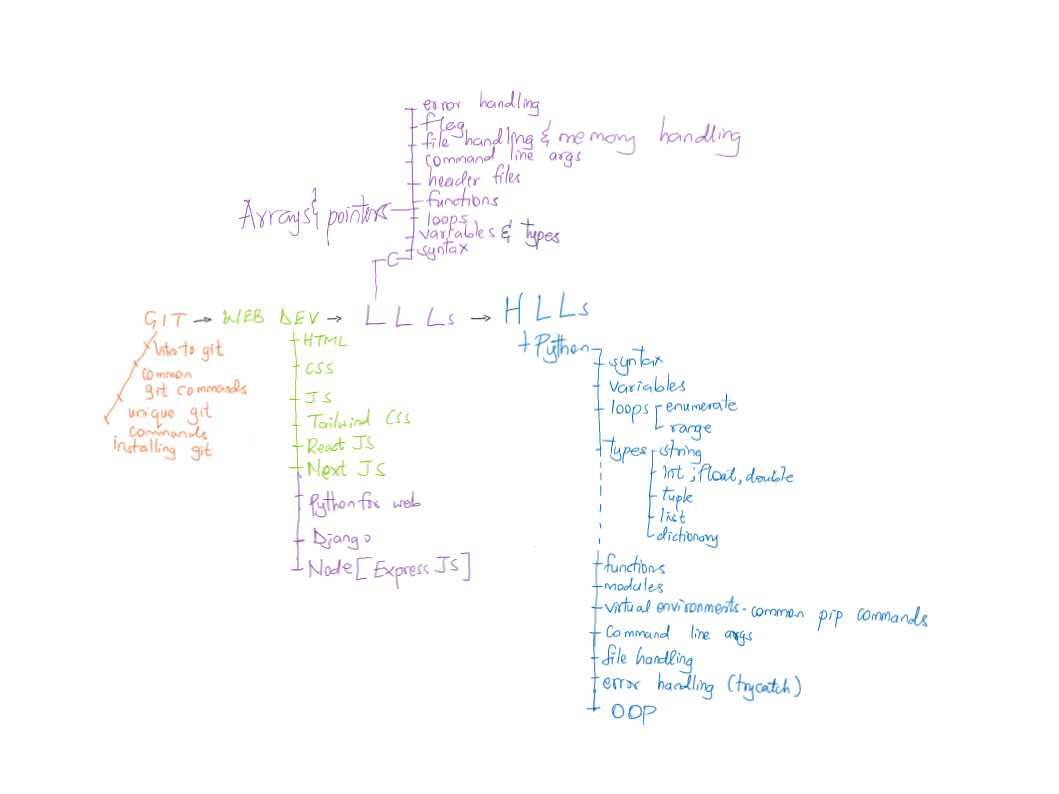 error handling
flag
file handling & memory handling
command line args
header files
Arrays & pointers
functions
loops
variables & types
syntax
C
GIT → WEB DEV → L L Ls → H L Ls
Intro to git
common
git commands
unique git
commands
installing git
HTML
CSS
JS
Tailwind CSS
React JS
Next JS
Python for web
Django
Node [Express JS]
Python
syntax
variables
loops
enumerate
range
types
string
int ; float, double
tuple
list
dictionary
functions
modules
virtual environments - common pip commands
Command line args
file handling
error handling (trycatch)
OOP